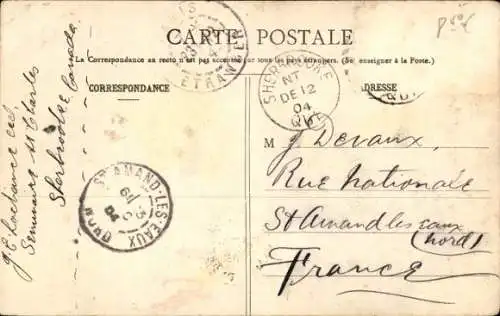 CARTE POSTALE
La Correspondance au recto n'est pas acceptée par tous les pays étrangers. (Se renseigner à la Poste.)
CORRESPONDANCE
ADRESSE
ETRANGER
SHERBROOKE
NT
DE 12
04
QUE
M J Devaux,
Rue Nationale
St Amand les eaux
(Nord)
France
ST-AMAND-LES-EAUX
NORD
Seminaire St Charles
Sherbrooke Canada